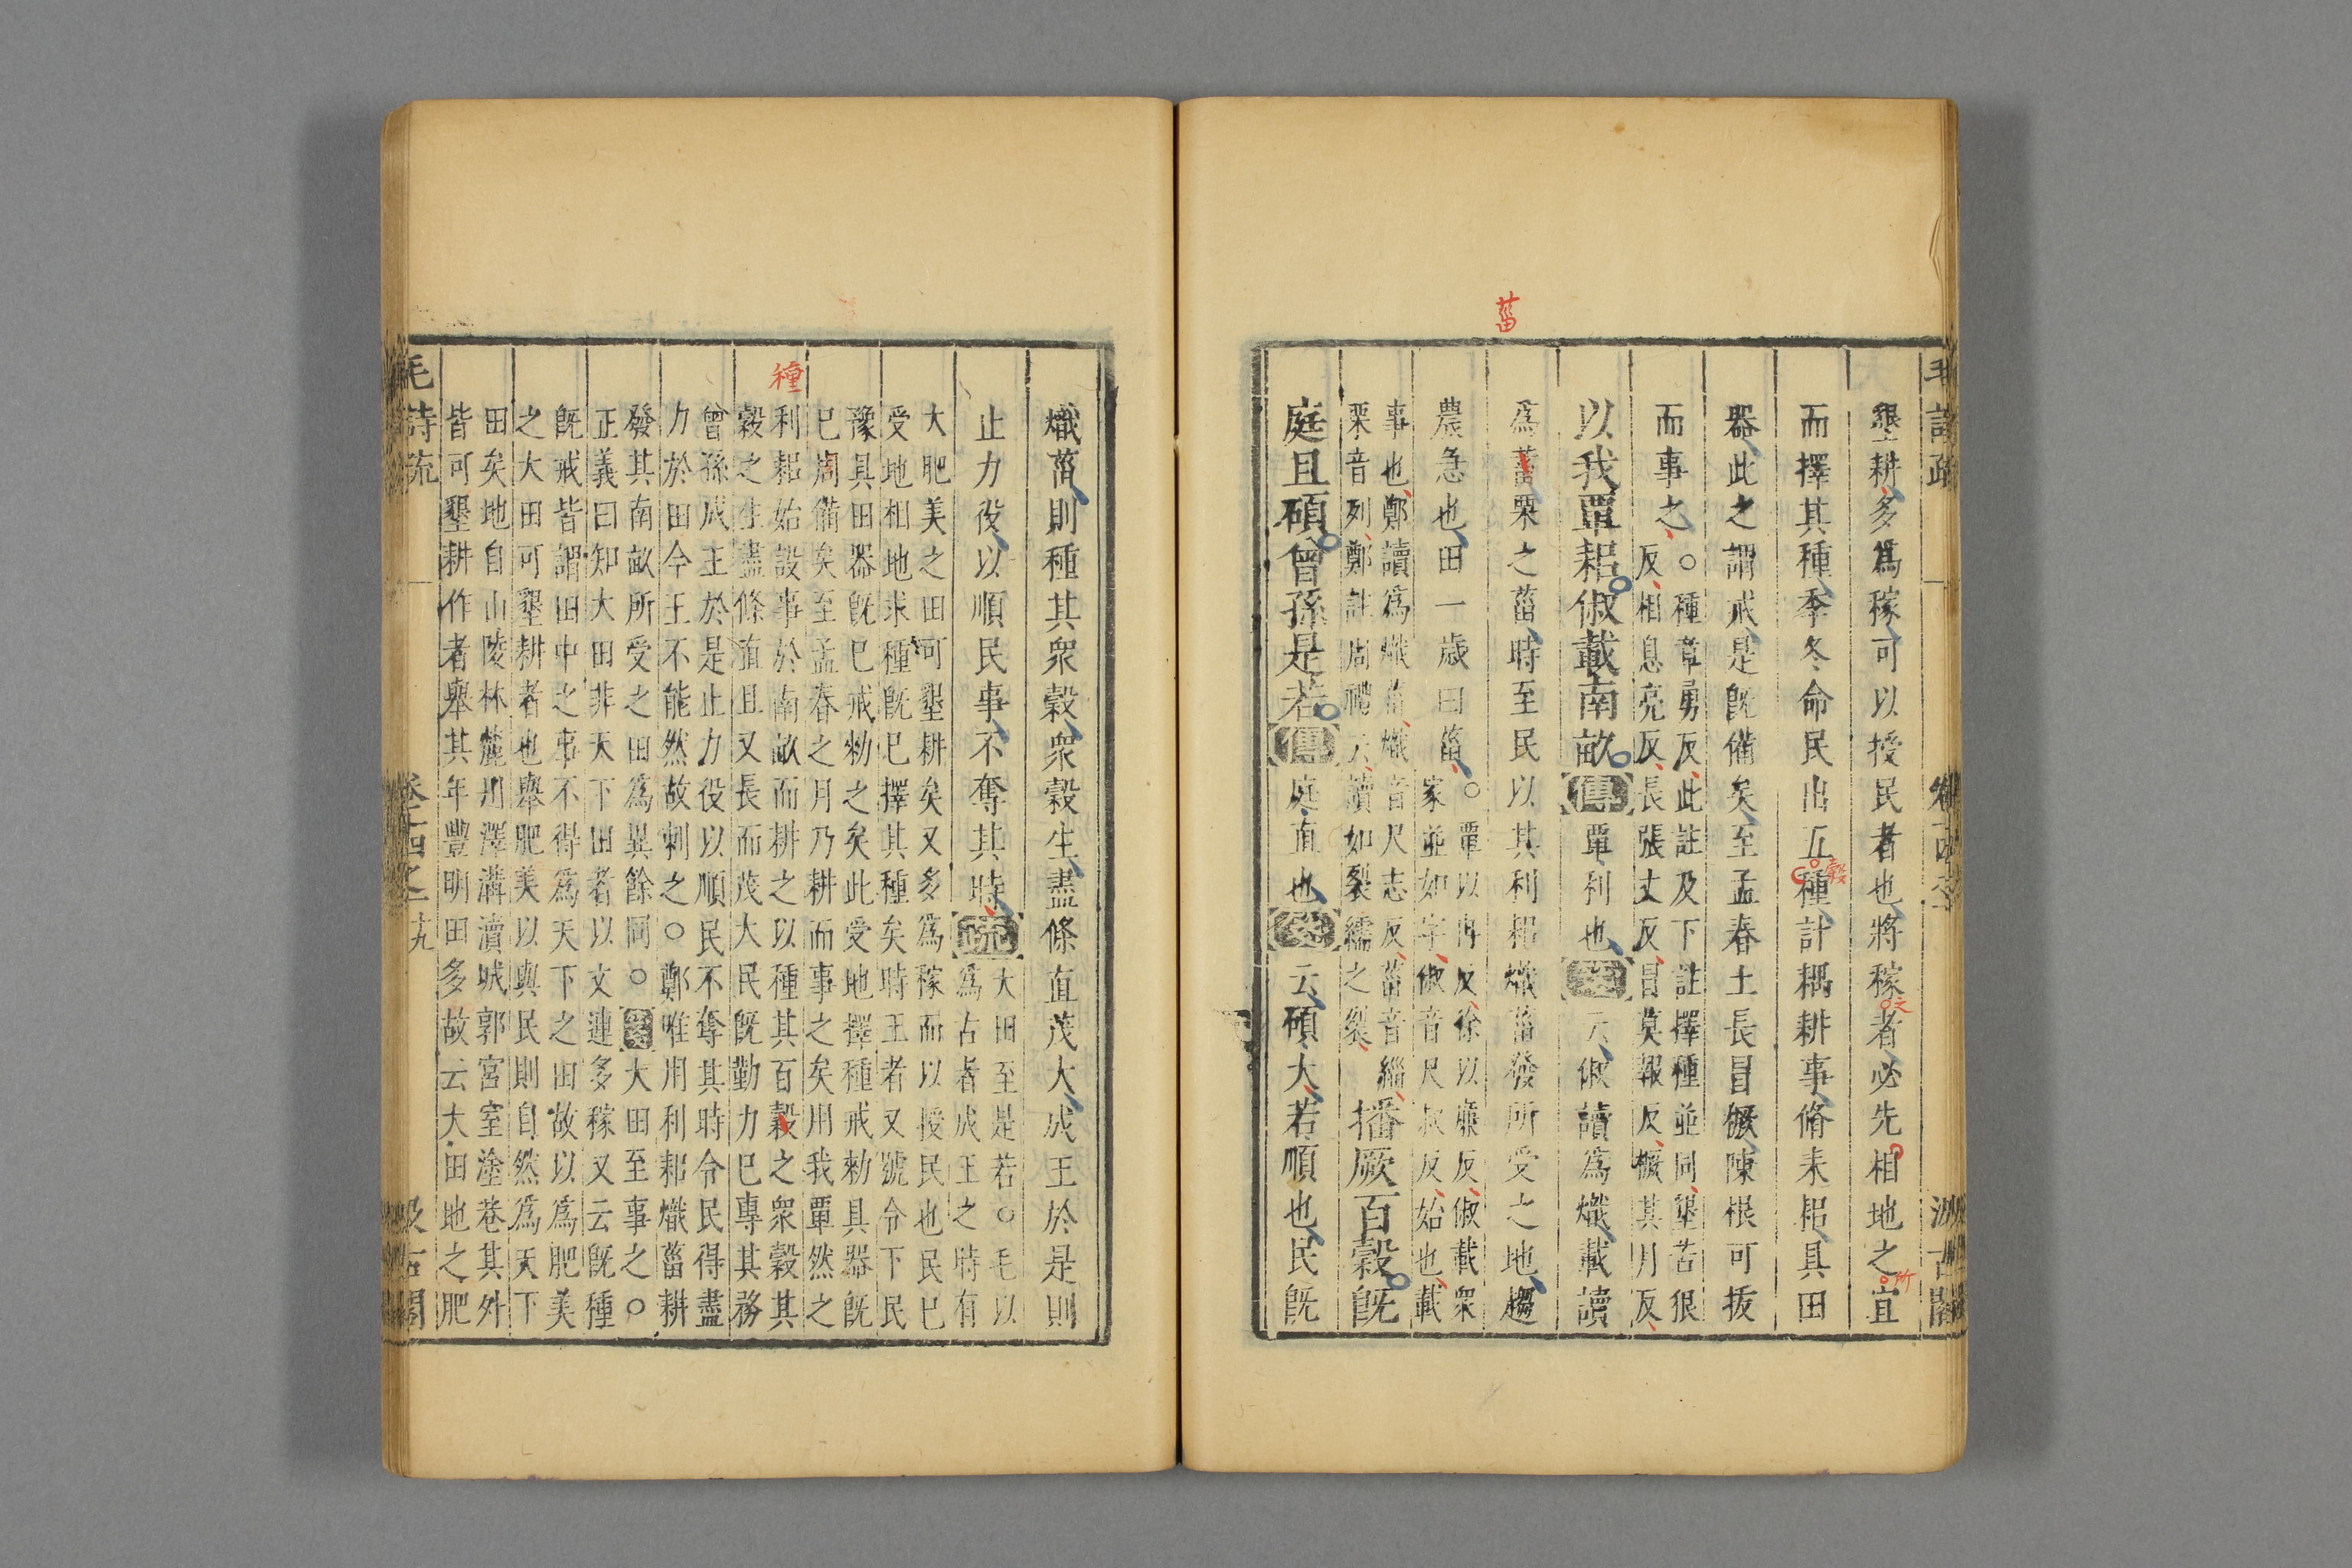 毛詩疏
汲古閣
墾耕多爲稼可以授民者也將稼者必先相地之宜
之
所
而擇其種季冬命民出五種計耦耕事脩耒耜具田
穀
器此之謂戒是旣備矣至孟春土長冒橛陳根可拔
而事之
○種章勇反此註及下註擇種並同墾苦狠
反相息亮反長張丈反冒莫報反橛其月反
以我覃耜俶載南畝傳覃利也箋云俶讀爲熾載讀
爲菑栗之菑時至民以其利耜熾菑發所受之地趨
菑
農急也田一歲曰菑
○覃以冉反徐以廉反俶載衆
家並如字俶音尺叔反始也載
事也鄭讀爲熾菑熾音尺志反菑音緇
栗音列鄭註周禮云讀如裂繻之裂
播厥百穀旣
庭且碩曾孫是若傳庭直也箋云碩大若順也民旣
熾菑則種其衆穀衆穀生盡條直茂大成王於是則
止力役以順民事不奪其時疏
大田至是若○毛以
爲古者成王之時有
大肥美之田可墾耕矣又多爲稼而以授民也民已
受地相地求種旣已擇其種矣時王者又號令下民
豫具田器旣已戒勑之矣此受地擇種戒勑具器旣
已周備矣至孟春之月乃耕而事之矣用我覃然之
種
利耜始設事於南畝而耕之以種其百穀之衆穀其
穀之生盡條直且又長而茂大民旣勤力已專其務
曾孫成王於是止力役以順民不奪其時令民得盡
力於田今王不能然故刺之○鄭唯用利耜熾菑耕
發其南畝所受之田爲異餘同○箋大田至事之○
正義曰知大田非天下田者以文連多稼又云旣種
旣戒皆謂田中之事不得爲天下之田故以爲肥美
之大田可墾耕者也舉肥美以與民則自然爲天下
田矣地自山陵林麓川澤溝瀆城郭宮室塗巷其外
皆可墾耕作者舉其年豐明田多故云大田地之肥
毛詩疏
十九